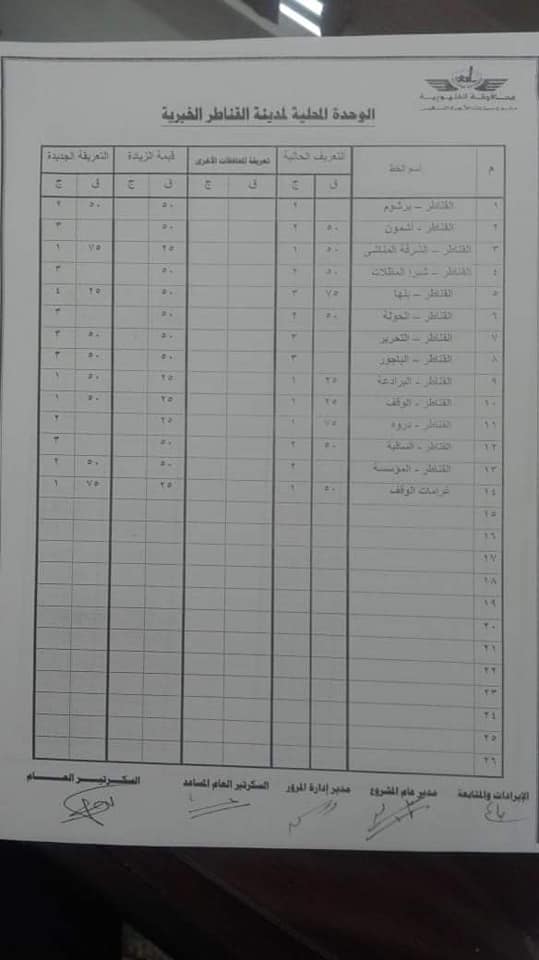 محافظة القليوبية
الوحدة المحلية لمدينة القناطر الخيرية
م اسم الخط التعريف الحالية تعريفة للمحافظات الأخرى قيمة الزيادة التعريفة الجديدة
ق ج ق ج ق ج ق ج
١ القناطر – برشوم ٢ ٥٠ ٥٠ ٢
٢ القناطر – أشمون ٥٠ ٢ ٥٠ ٣
٣ القناطر – الشرفة المناشى ٥٠ ١ ٢٥ ٧٥ ١
٤ القناطر – شبرا المظلات ٥٠ ٢ ٥٠ ٣
٥ القناطر – بنها ٧٥ ٣ ٥٠ ٢٥ ٤
٦ القناطر – الحولة ٥٠ ٢ ٥٠ ٣
٧ القناطر – التحرير ٣ ٥٠ ٥٠ ٣
٨ القناطر – الباجور ٣ ٥٠ ٥٠ ٣
٩ القناطر – البرادعة ٢٥ ١ ٢٥ ٥٠ ١
١٠ القناطر – الوقف ٢٥ ١ ٢٥ ٥٠ ١
١١ القناطر – دروه ٧٥ ١ ٢٥ ٢
١٢ القناطر – الساقية ٥٠ ٢ ٥٠ ٣
١٣ القناطر – المؤسسة ٢ ٥٠ ٥٠ ٢
١٤ غرامات الوقف ٥٠ ١ ٢٥ ٧٥ ١
١٥
١٦
١٧
١٨
١٩
٢٠
٢١
٢٢
٢٣
٢٤
٢٥
٢٦
الإيرادات والمتابعة مدير عام المشروع مدير إدارة المرور السكرتير العام المساعد السكرتير العام